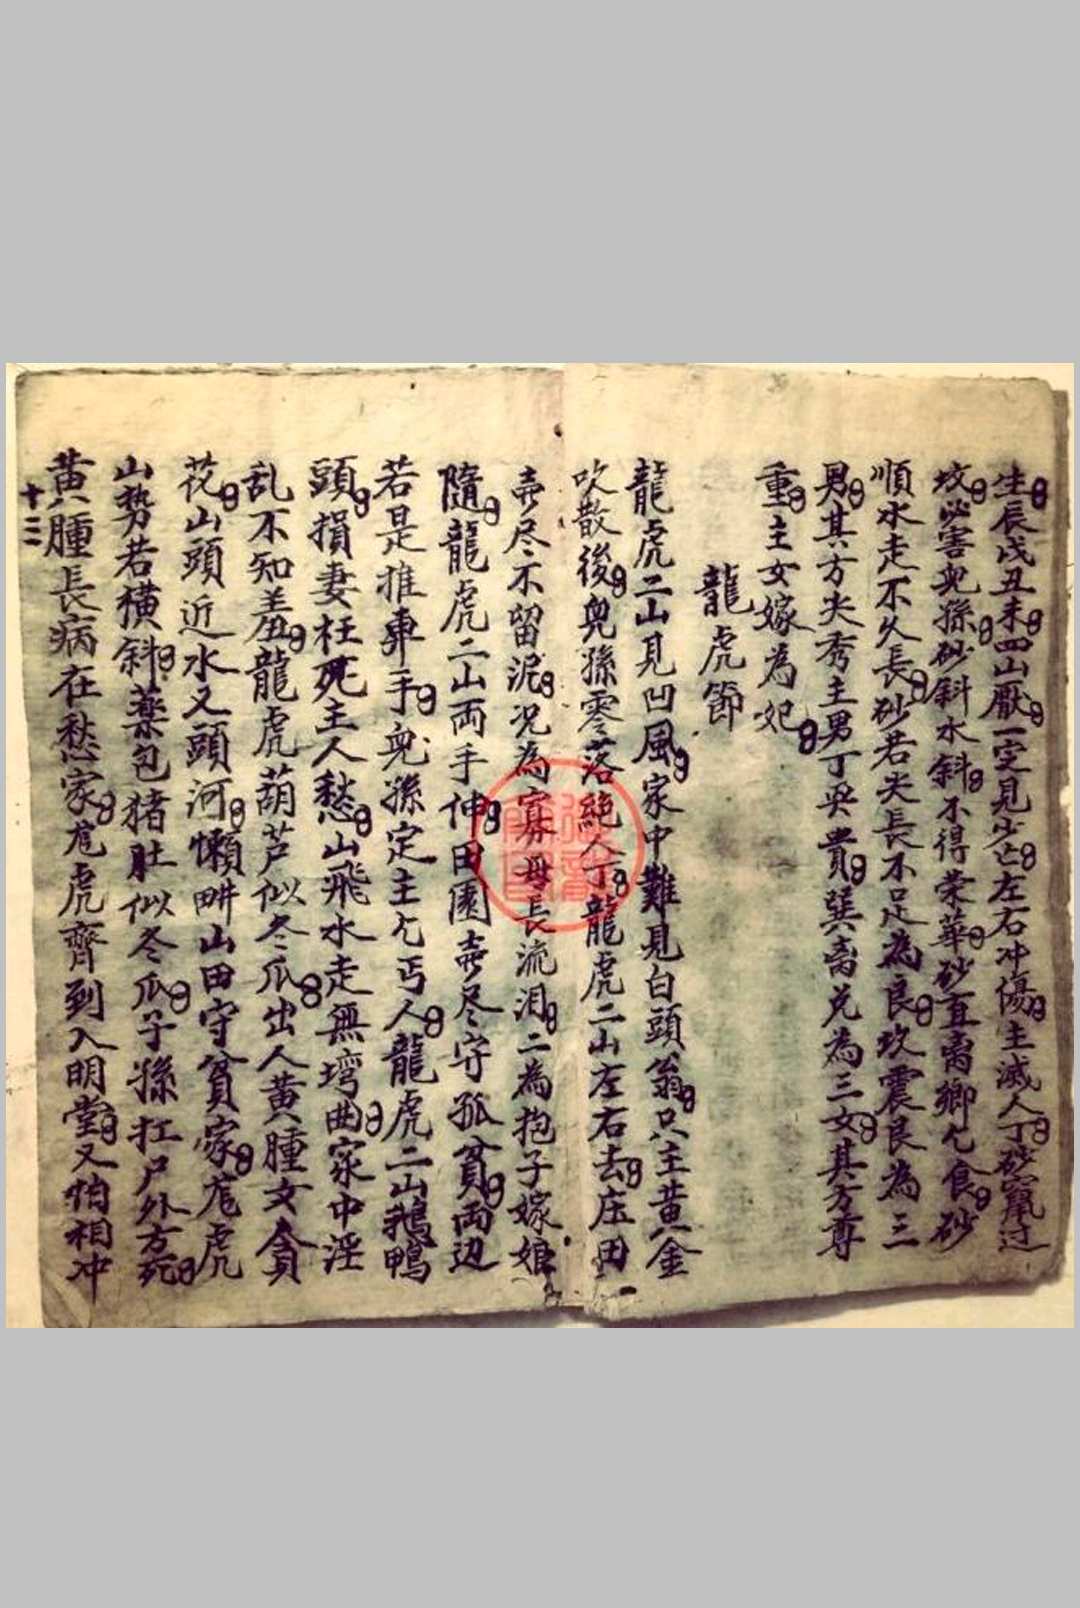 生辰戌丑未四山厭一定見少亡左右冲傷主滅人丁砂竄过
坟必害兒孫砂斜水斜不得荣華砂直离鄉乞食砂
順水走不久長砂若尖長不足為良坎震艮為三
男其方尖秀主男丁英貴巽离兌為三女其方尊
重主女嫁為妃
龍虎節
龍虎二山見凹風家中難見白頭翁只主黄金
吹散後兒孫零落絕人丁龍虎二山左右去庄田
壶尽不留泥况為寡母長流泪二為抱子嫁娘
隨龍虎二山両手伸田園壶尽守孤貧両边
若是推車手兒孫定主乞丐人龍虎二山鵝鴨
頭損妻枉死主人愁山飛水走無弯曲家中淫
乱不知羞龍虎葫芦似冬瓜出人黄腫女貪
花山頭近水又頭河懒畊山田守貧家 虎
山勢若横斜薬包猪肚似冬瓜子孫扛尸外方死
黄腫長病在愁家 虎齊到入明堂又怕相冲
十三